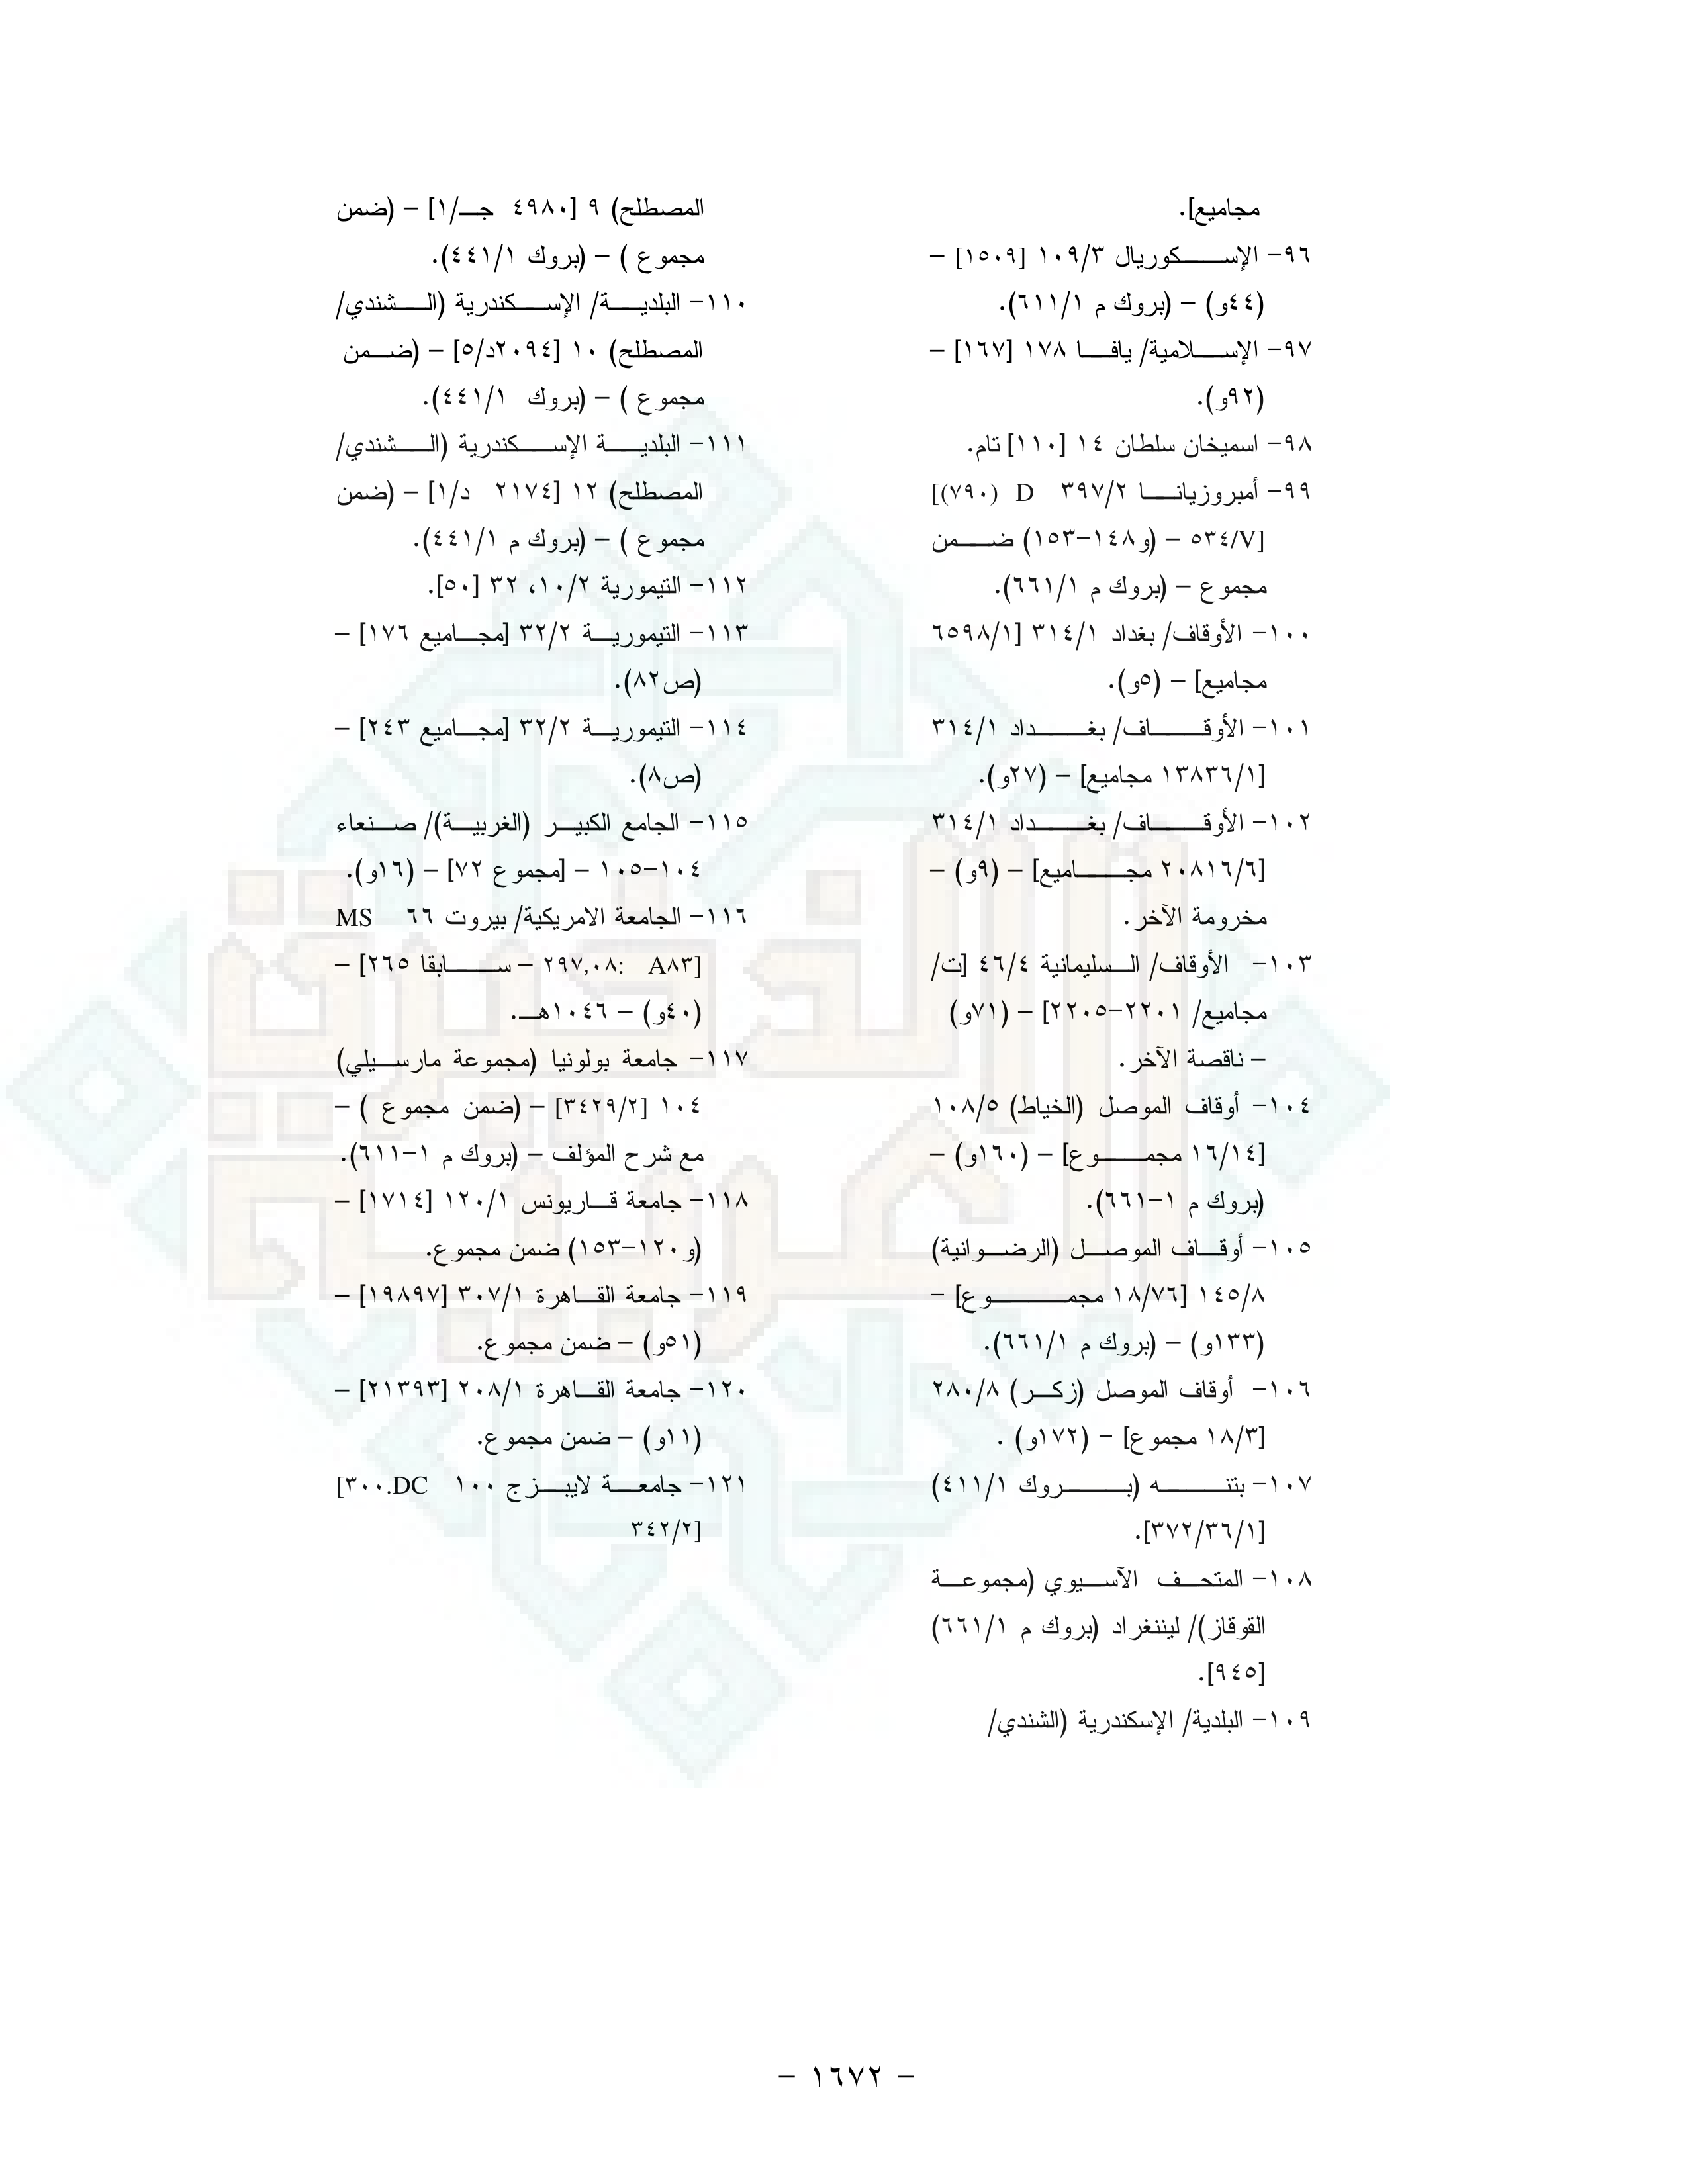 مجاميع].
٩٦- الإسكوريال ١٠٩/٣ [١٥٠٩] -
(٤٤و) - (بروك م ٦١١/١).
٩٧- الإسلامية/ يافا ١٧٨ [١٦٧] -
(٩٢و).
٩٨- اسميخان سلطان ١٤ [١١٠] تام.
٩٩- أمبروزيانا ٣٩٧/٢ D (٧٩٠)]
[٥٣٤/V - (و١٤٨-١٥٣) ضمن
مجموع - (بروك م ٦٦١/١).
١٠٠- الأوقاف/ بغداد ٣١٤/١ [٦٥٩٨/١
مجاميع] - (٥و).
١٠١- الأوقاف/ بغداد ٣١٤/١
[١٣٨٣٦/١ مجاميع] - (٢٧و).
١٠٢- الأوقاف/ بغداد ٣١٤/١
[٢٠٨١٦/٦ مجاميع] - (٩و) -
مخرومة الآخر.
١٠٣- الأوقاف/ السليمانية ٤٦/٤ [ت/
مجاميع/ ٢٢٠١-٢٢٠٥] - (٧١و)
- ناقصة الآخر.
١٠٤- أوقاف الموصل (الخياط) ١٠٨/٥
[١٦/١٤ مجموع] - (١٦٠و) -
(بروك م ١-٦٦١).
١٠٥- أوقاف الموصل (الرضوانية)
١٤٥/٨ [١٨/٧٦ مجموع] -
(١٣٣و) - (بروك م ٦٦١/١).
١٠٦- أوقاف الموصل (زكر) ٢٨٠/٨
[١٨/٣ مجموع] - (١٧٢و) .
١٠٧- بتنه (بروك ٤١١/١)
[٣٧٢/٣٦/١].
١٠٨- المتحف الآسيوي (مجموعة
القوقاز)/ ليننغراد (بروك م ٦٦١/١)
[٩٤٥].
١٠٩- البلدية/ الإسكندرية (الشندي/
المصطلح) ٩ [٤٩٨٠ جـ/١] - (ضمن
مجموع ) - (بروك ٤٤١/١).
١١٠- البلدية/ الإسكندرية (الشندي/
المصطلح) ١٠ [٢٠٩٤د/٥] - (ضمن
مجموع ) - (بروك ٤٤١/١).
١١١- البلدية الإسكندرية (الشندي/
المصطلح) ١٢ [٢١٧٤ د/١] - (ضمن
مجموع ) - (بروك م ٤٤١/١).
١١٢- التيمورية ١٠/٢، ٣٢ [٥٠].
١١٣- التيمورية ٣٢/٢ [مجاميع ١٧٦] -
(ص٨٢).
١١٤- التيمورية ٣٢/٢ [مجاميع ٢٤٣] -
(ص٨).
١١٥- الجامع الكبير (الغربية)/ صنعاء
١٠٤-١٠٥ - [مجموع ٧٢] - (١٦و).
١١٦- الجامعة الامريكية/ بيروت ٦٦ MS
[٢٩٧,٠٨: A٨٣ - سابقا ٢٦٥] -
(٤٠و) - ١٠٤٦هـ.
١١٧- جامعة بولونيا (مجموعة مارسيلي)
١٠٤ [٣٤٢٩/٢] - (ضمن مجموع ) -
مع شرح المؤلف - (بروك م ١-٦١١).
١١٨- جامعة قاريونس ١٢٠/١ [١٧١٤] -
(و١٢٠-١٥٣) ضمن مجموع.
١١٩- جامعة القاهرة ٣٠٧/١ [١٩٨٩٧] -
(٥١و) - ضمن مجموع.
١٢٠- جامعة القاهرة ٢٠٨/١ [٢١٣٩٣] -
(١١و) - ضمن مجموع.
١٢١- جامعة لايبزج ١٠٠ DC.٣٠٠]
[٣٤٢/٢
- ١٦٧٢ -